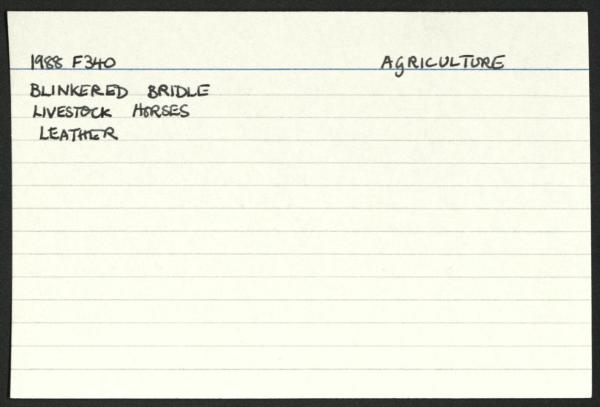 1988 F340 AGRICULTURE
BLINKERED BRIDLE
LIVESTOCK HORSES
LEATHER